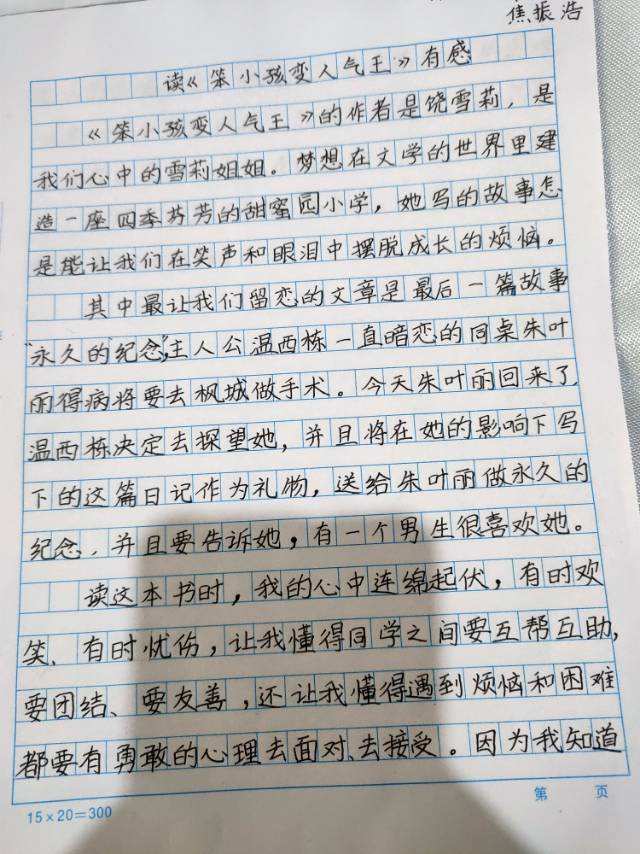 焦振浩
读《笨小孩变人气王》有感
《笨小孩变人气王》的作者是饶雪莉，是
我们心中的雪莉姐姐。梦想在文学的世界里建
造一座四季芬芳的甜蜜园小学，她写的故事怎
是能让我们在笑声和眼泪中摆脱成长的烦恼。
其中最让我们留恋的文章是最后一篇故事
“永久的纪念”，主人公温西栋一直暗恋的同桌朱叶
丽得病将要去枫城做手术。今天朱叶丽回来了，
温西栋决定去探望她，并且将在她的影响下写
下的这篇日记作为礼物，送给朱叶丽做永久的
纪念、并且要告诉她，有一个男生很喜欢她。
读这本书时，我的心中连绵起伏，有时欢
笑、有时忧伤，让我懂得同学之间要互帮互助，
要团结、要友善，还让我懂得遇到烦恼和困难
都要有勇敢的心理去面对、去接受。因为我知道
15×20=300
第 页